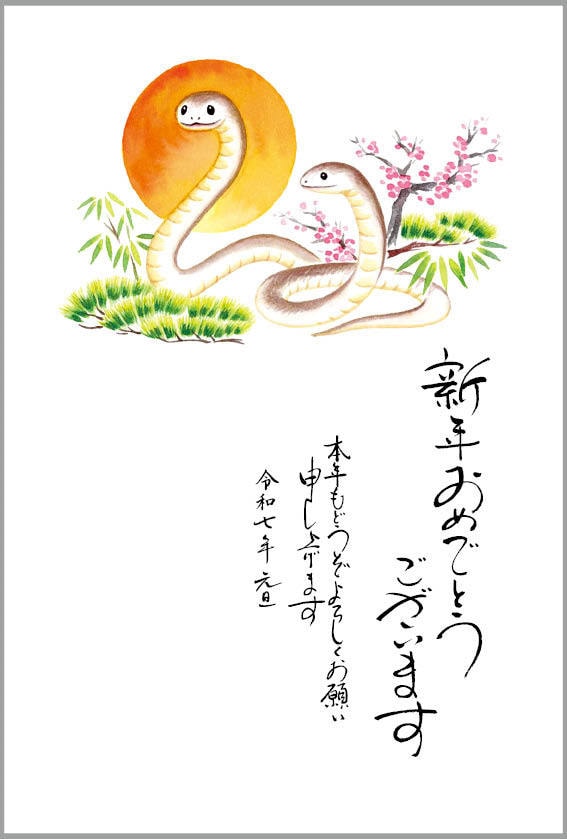 新年おめでとう
ございます
本年もどうぞよろしくお願い
申し上げます
令和七年 元旦